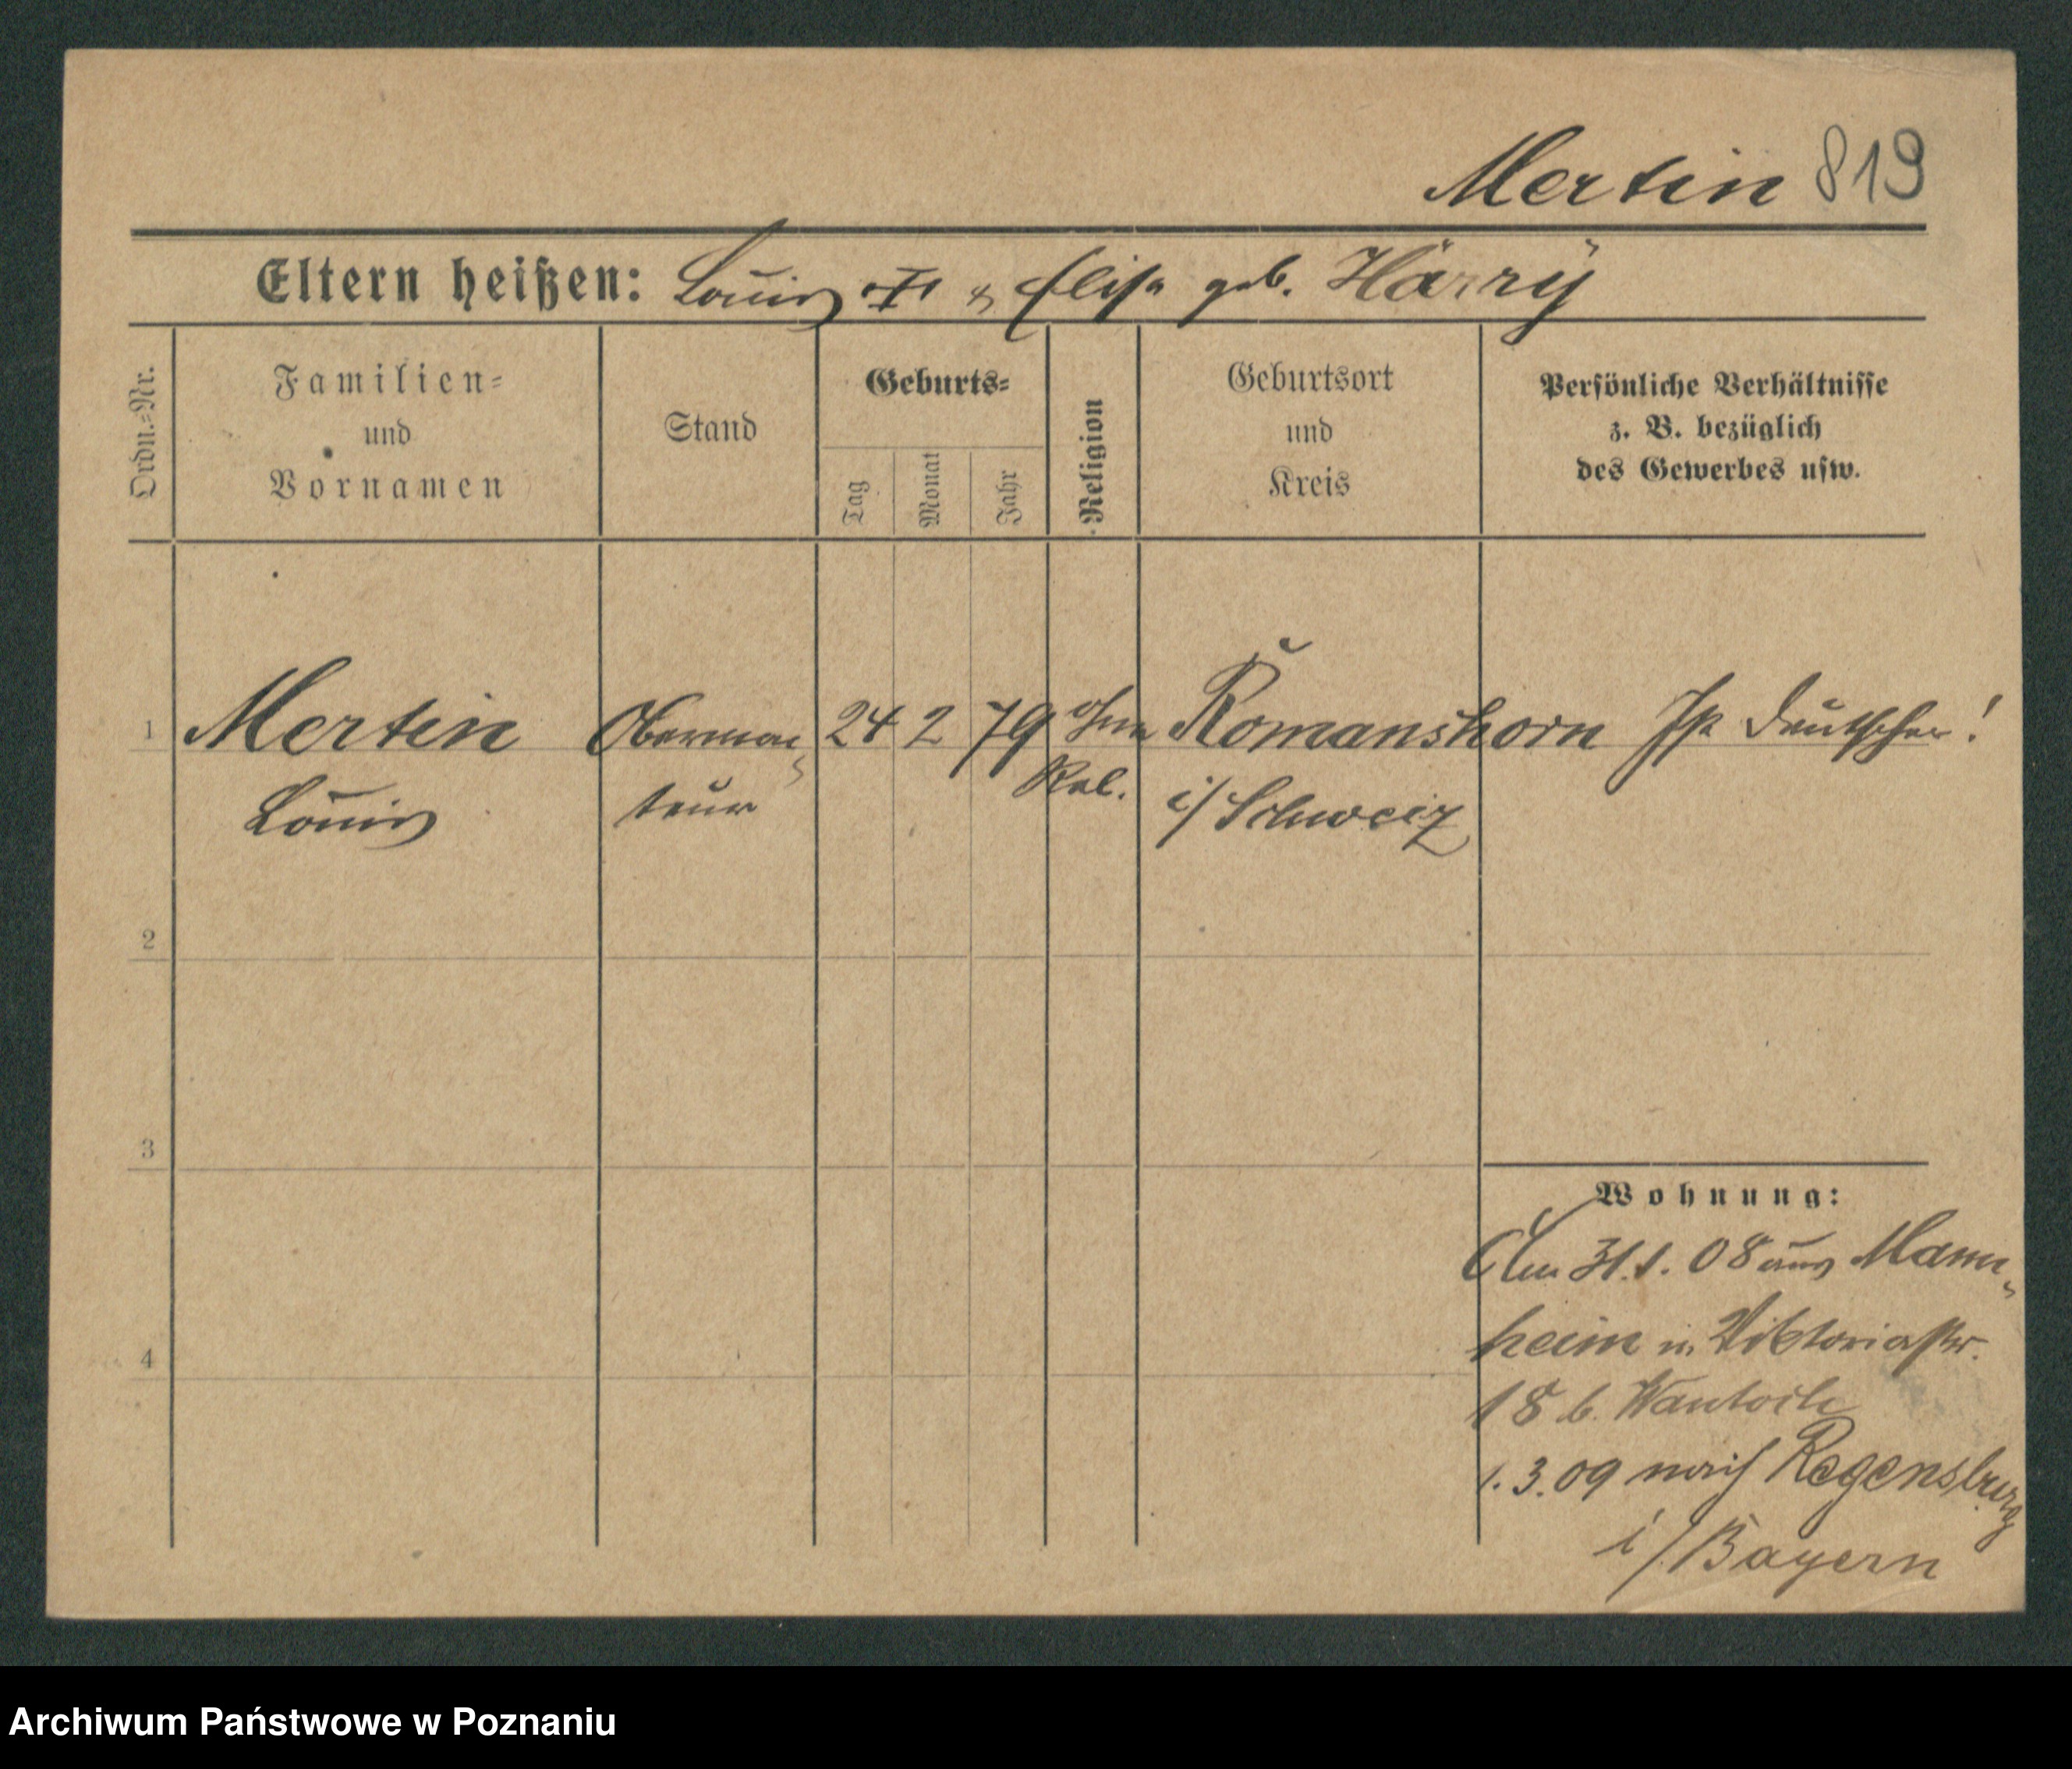 Mertin 819
Eltern heißen: Louis † & Elisa geb. Härry
Ordn.=Nr.
Familien=
und
Vornamen
Stand
Geburts=
Tag
Monat
Jahr
Religion
Geburtsort
und
Kreis
Persönliche Verhältnisse
z. B. bezüglich
des Gewerbes usw.
1 Mertin Obermon 24 2 79 ohne Romanshorn Ist Deutscher!
Louis teur Rel. i/Schweiz
2
3
4
Wohnung:
Am 31.1.08 aus Mann-
heim n. Viktoriastr.
18 b.
1.3.09 nach Regensburg
i/Bayern
Archiwum Państwowe w Poznaniu